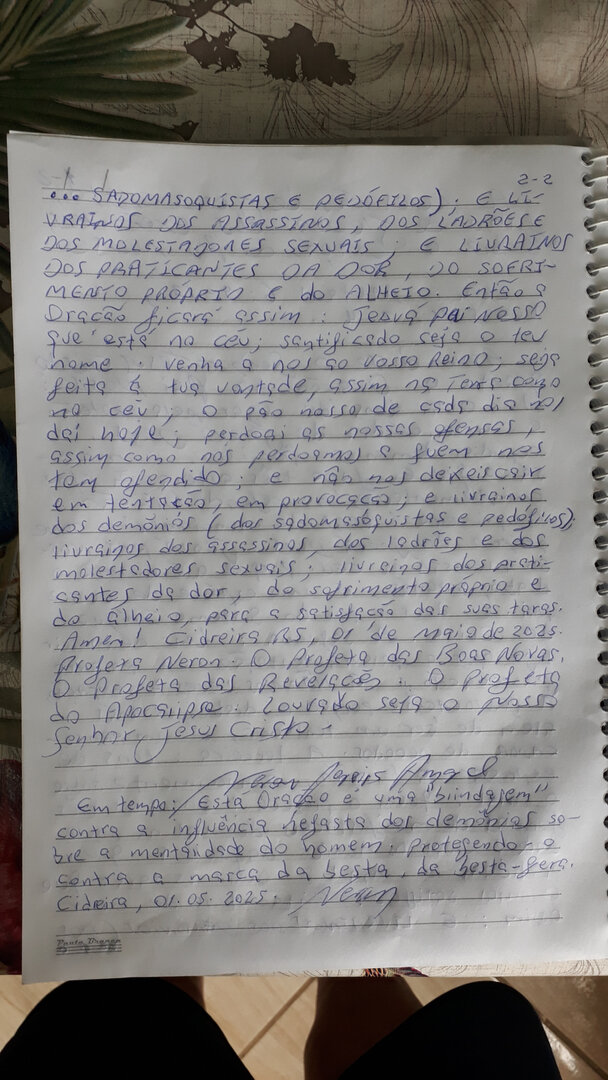 2-2
... SADOMASOQUISTAS E PEDÓFILOS). E LI-
VRAINOS DOS ASSASSINOS, DOS LADRÕES E
DOS MOLESTADORES SEXUAIS; E LIVRAINOS
DOS PRATICANTES DA DOR, DO SOFRI-
MENTO PRÓPRIO E do ALHEIO. Então a
Oração ficará assim: Jeová pai Nosso
que está no céu; santificado seja o teu
nome; venha a nos ao vosso Reino; seja
feita a tua vontade, assim na Terra como
no céu; o pão nosso de cada dia nos
daí hoje; perdoai as nossas ofensas,
assim como nos perdoamos a quem nos
tem ofendido; e não nos deixeis cair
em tentação, em provocação; e livrainos
dos demônios (dos sadomasoquistas e pedófilos);
livrainos dos assassinos, dos ladrões e dos
molestadores sexuais; livrainos dos prati-
cantes da dor, do sofrimento próprio e
do alheio, para a satisfação das suas taras.
Amem! Cidreira RS, 01 de Maio de 2025.
Profeta Neron. O Profeta das Boas Novas.
O Profeta das Revelações. O Profeta
do Apocalipse. Louvado seja o Nosso
Senhor, Jesus Cristo.
Em tempo: Esta Oração é uma "blindajem"
contra a influência nefasta dos demônios so-
bre a mentalidade do homem. protegendo-o
contra a marca da besta, da besta-fera.
Cidreira, 01.05.2025. Neron